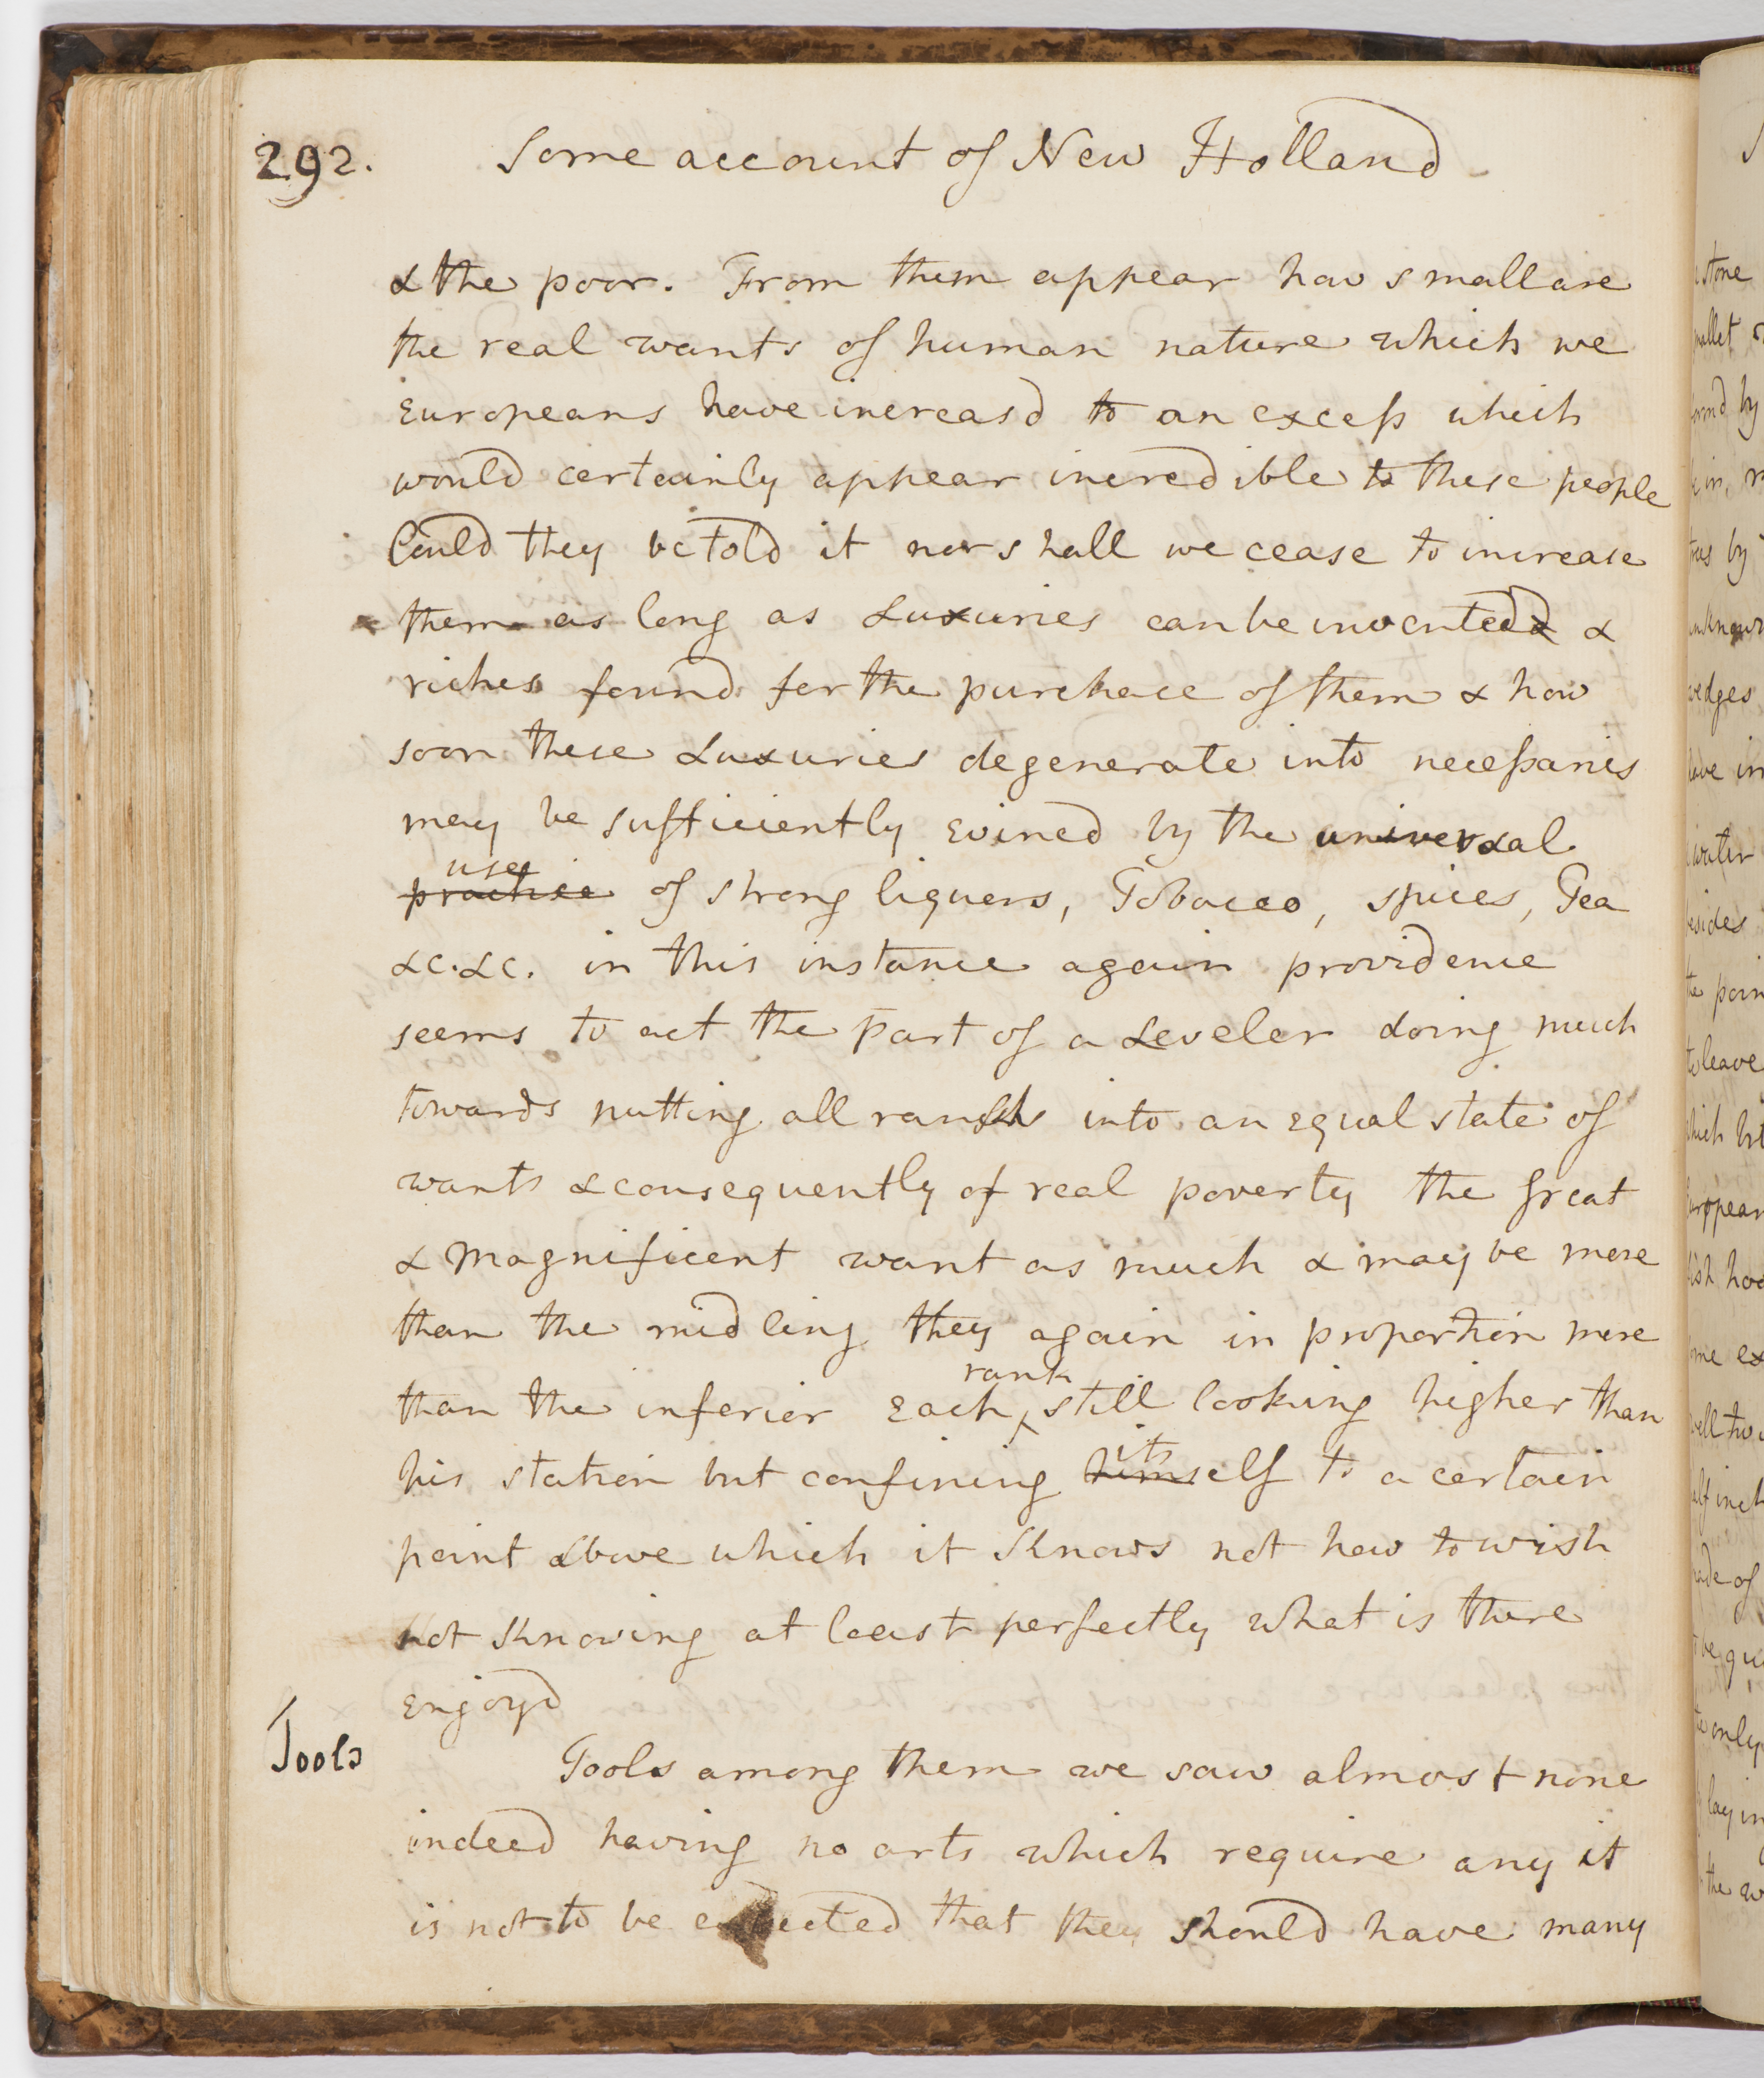 292. Some account of New Holland
& the poor. From them appear how small are
the real wants of human nature which we
Europeans have increasd to an excess which
would certainly appear incredible to these people
Could they be told it nor shall we cease to increase
them as long as Luxuries can be invented &
riches found for the purchace of them & how
soon these Luxuries degenerate into necessaries
may be sufficiently evincd by the universal
practice use of strong liquers, Tobacco, spices, Tea
&c. &c. in this instance again providence
seems to act the part of a Leveler doing much
towards putting all ranks into an equal state of
wants & consequently of real poverty the Great
& Magnificent want as much & may be more
than the midling they again in proportion more
than the inferior Each rank still looking higher than
his station but confining himself its to a certain
point above which it Knows not how to wish
not Knowing at least perfectly what is there
Enjoyd
Tools
Tools among them we saw almost none
indeed having no arts which require any it
is not to be expected that they should have many
stone
mallet
by
in
by
unknown
wedges
have in
water
besides
the poin
to leave
which
European
fish hoo
me ex
well
half inch
made of
be qu
the only
lay in
the